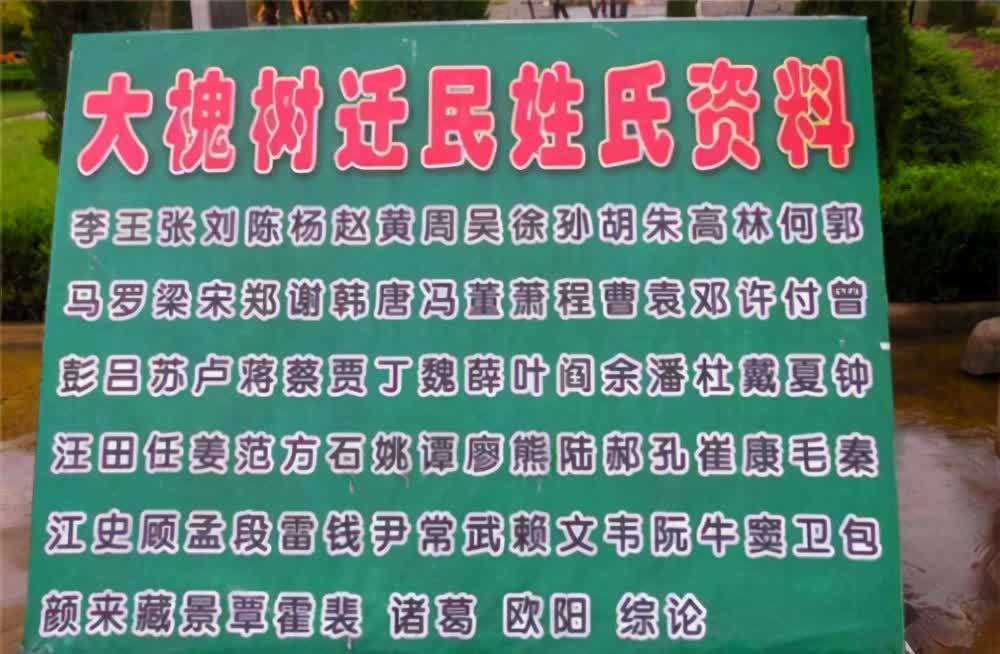 大槐树迁民姓氏资料
李王张刘陈杨赵黄周吴徐孙胡朱高林何郭
马罗梁宋郑谢韩唐冯董萧程曹袁邓许付曾
彭吕苏卢蒋蔡贾丁魏薛叶阎余潘杜戴夏钟
汪田任姜范方石姚谭廖熊陆郝孔崔康毛秦
江史顾孟段雷钱尹常武赖文韦阮牛窦卫包
颜来藏景覃霍裴 诸葛 欧阳 综论